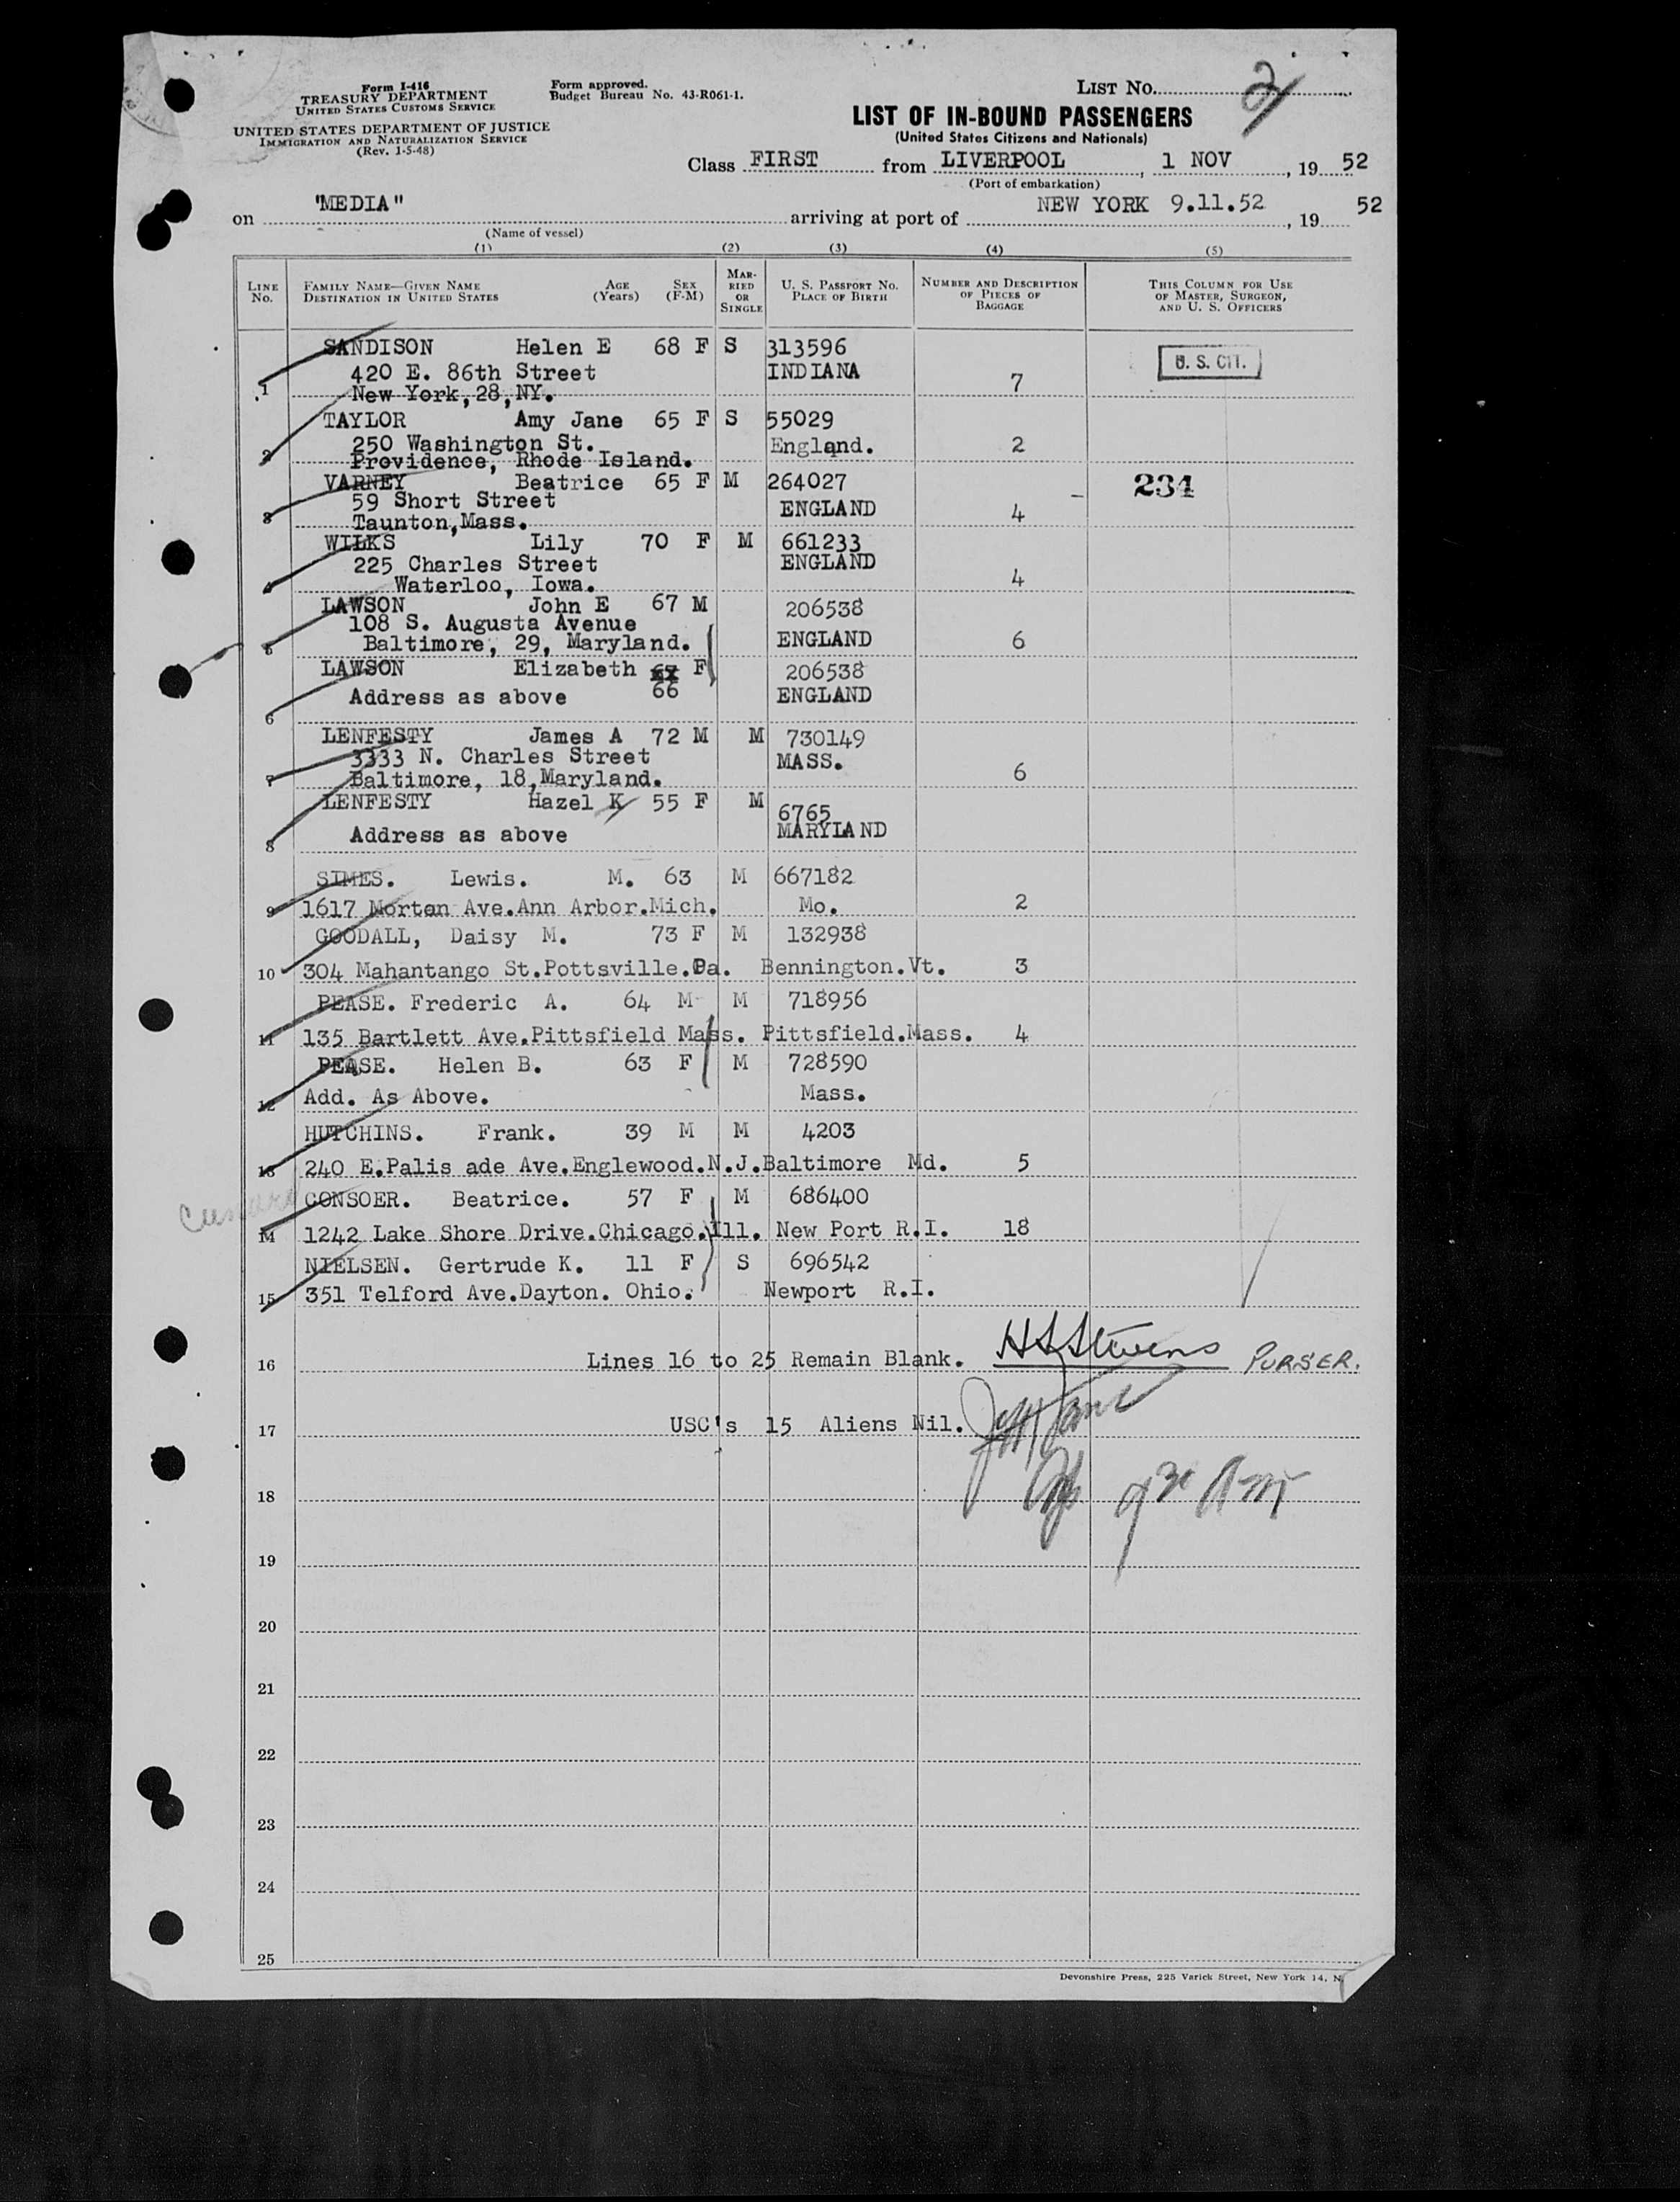 Form I-416
TREASURY DEPARTMENT
UNITED STATES CUSTOMS SERVICE
UNITED STATES DEPARTMENT OF JUSTICE
IMMIGRATION AND NATURALIZATION SERVICE
(Rev. 1-5-48)
Form approved.
Budget Bureau No. 43-R061-1.
LIST No. 2
LIST OF IN-BOUND PASSENGERS
(United States Citizens and Nationals)
Class FIRST from LIVERPOOL, 1 NOV, 19 52
(Port of embarkation)
on "MEDIA" arriving at port of NEW YORK 9.11.52, 19 52
(Name of vessel)
(1) (2) (3) (4) (5)
LINE No. FAMILY NAME—GIVEN NAME DESTINATION IN UNITED STATES AGE (Years) SEX (F-M) MARRIED OR SINGLE U. S. PASSPORT No. PLACE OF BIRTH NUMBER AND DESCRIPTION OF PIECES OF BAGGAGE THIS COLUMN FOR USE OF MASTER, SURGEON, AND U. S. OFFICERS
SANDISON Helen E 68 F S 313596
420 E. 86th Street INDIANA U. S. CIT.
1 New York,28,NY. 7
TAYLOR Amy Jane 65 F S 55029
250 Washington St. England. 2
2 Providence, Rhode Island.
VARNEY Beatrice 65 F M 264027 234
59 Short Street ENGLAND 4
3 Taunton,Mass.
WILKS Lily 70 F M 661233
225 Charles Street ENGLAND
4 Waterloo, Iowa. 4
LAWSON John E 67 M 206538
108 S. Augusta Avenue
5 Baltimore, 29, Maryland. ENGLAND 6
LAWSON Elizabeth F 206538
Address as above 66 ENGLAND
6
LENFESTY James A 72 M M 730149
3333 N. Charles Street MASS.
7 Baltimore, 18,Maryland. 6
LENFESTY Hazel K 55 F M 6765
Address as above MARYLAND
8
SIMES. Lewis. M. 63 M 667182
9 1617 Morton Ave.Ann Arbor.Mich. Mo. 2
GOODALL, Daisy M. 73 F M 132938
10 304 Mahantango St.Pottsville.Pa. Bennington.Vt. 3
PEASE. Frederic A. 64 M M 718956
11 135 Bartlett Ave.Pittsfield Mass. Pittsfield.Mass. 4
PEASE. Helen B. 63 F M 728590
12 Add. As Above. Mass.
HUTCHINS. Frank. 39 M M 4203
13 240 E.Palis ade Ave.Englewood.N.J.Baltimore Md. 5
CONSOER. Beatrice. 57 F M 686400
Cunard
14 1242 Lake Shore Drive.Chicago.Ill. New Port R.I. 18
NIELSEN. Gertrude K. 11 F S 696542
15 351 Telford Ave.Dayton. Ohio. Newport R.I.
16 Lines 16 to 25 Remain Blank. Stevens PURSER.
17 USC's 15 Aliens Nil.
18
19
20
21
22
23
24
25
Devonshire Press, 225 Varick Street, New York 14, N